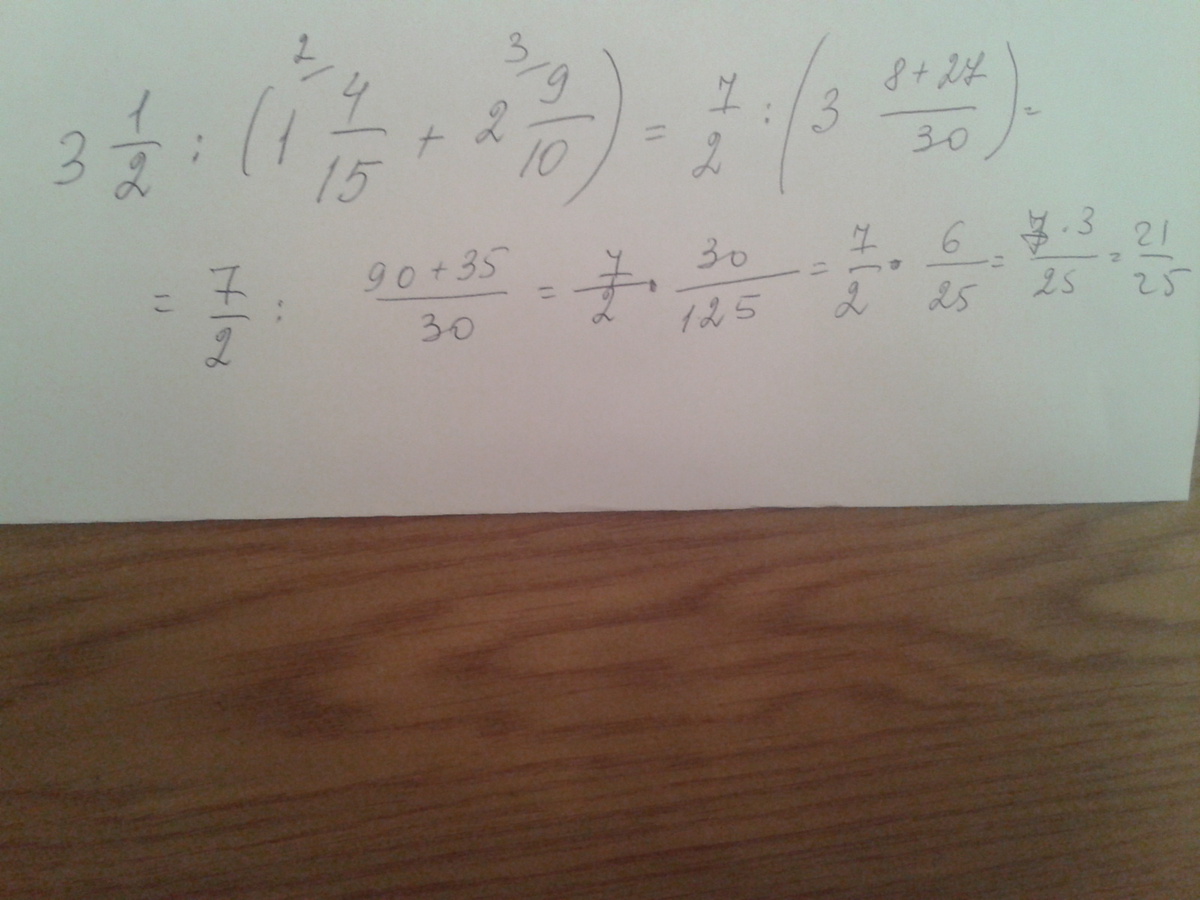 3 1/2 : (1 2/ 4/15 + 2 3/ 9/10) = 7/2 : (3 (8+27)/30) =
= 7/2 : (90+35)/30 = 7/2 · 30/125 = 7/2 · 6/25 = (7·3)/25 = 21/25